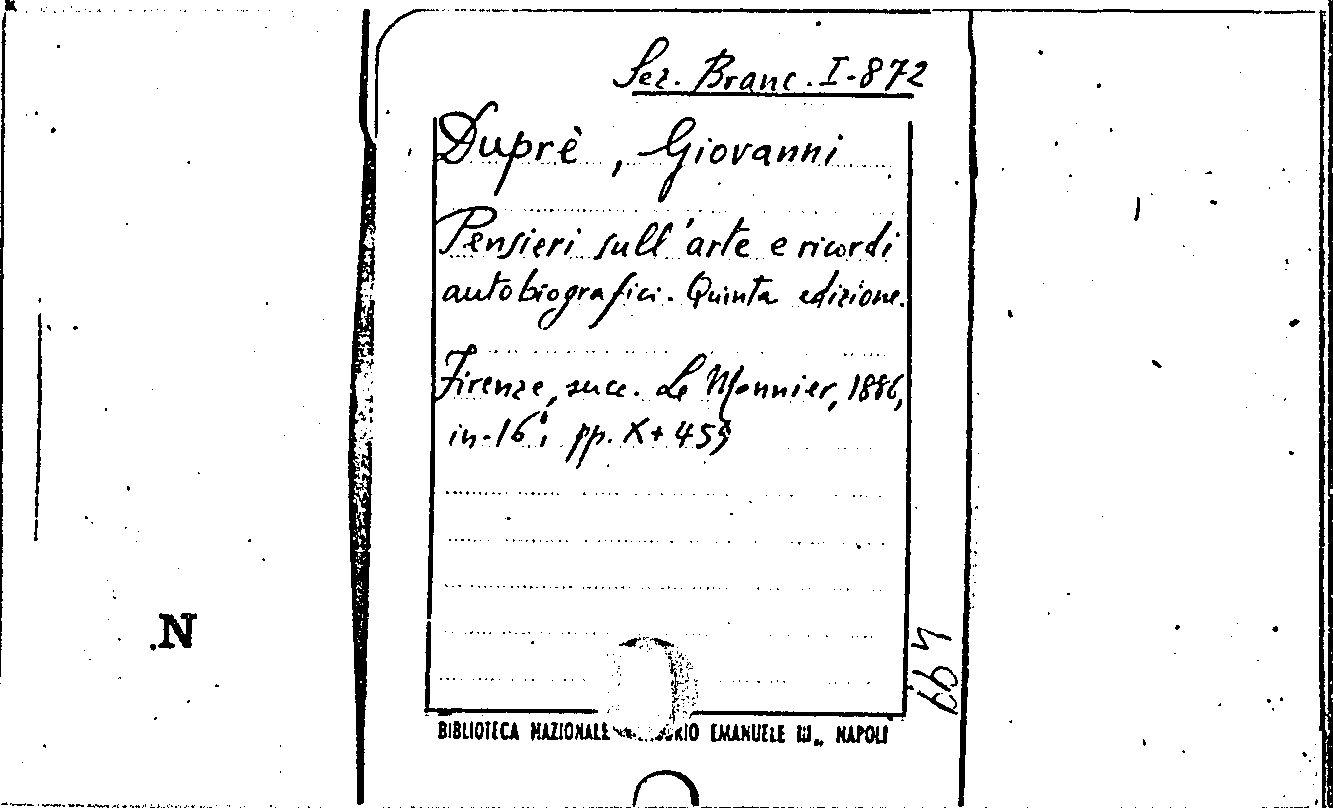 Sez. Branc. I-872
Duprè, Giovanni
Pensieri sull'arte e ricordi
autobiografici. Quinta edizione.
Firenze, succ. Le Monnier, 1886,
in-16°; pp. X+459
N
BIBLIOTECA NAZIONALE EMANUELE III„ NAPOLI